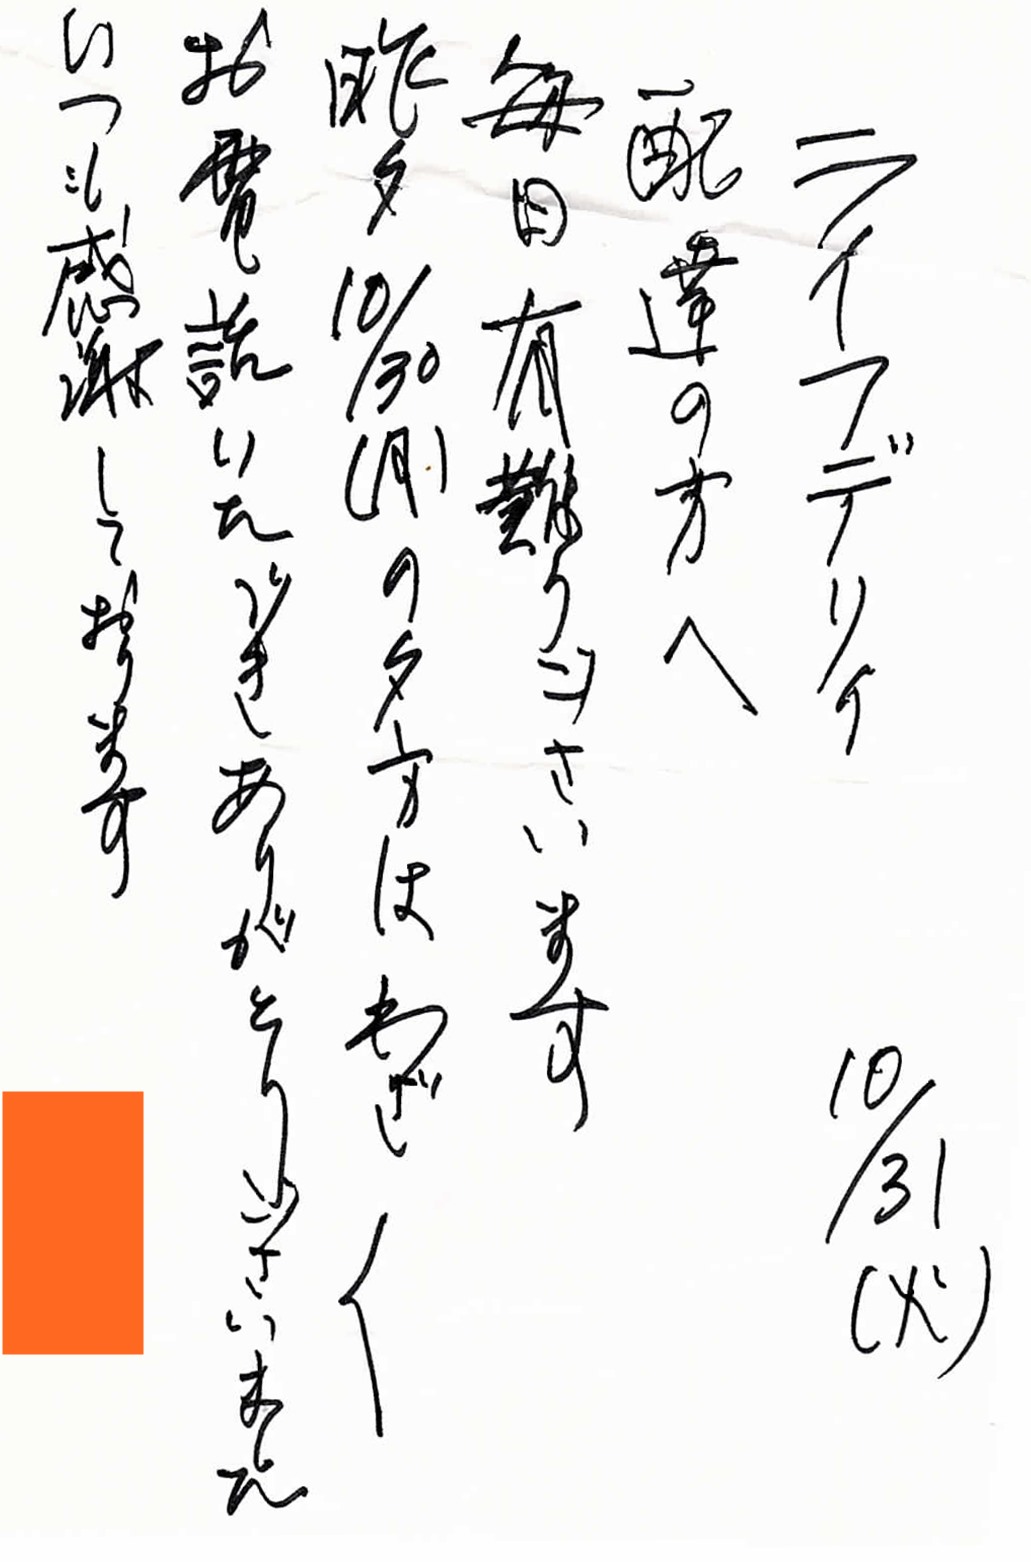 ライフデリィ
10/31(火)
配達の方へ
毎日有難うございます
昨夕10/30(月)の夕方はわざ〱
お電話いただきありがとうございました
いつも感謝しております